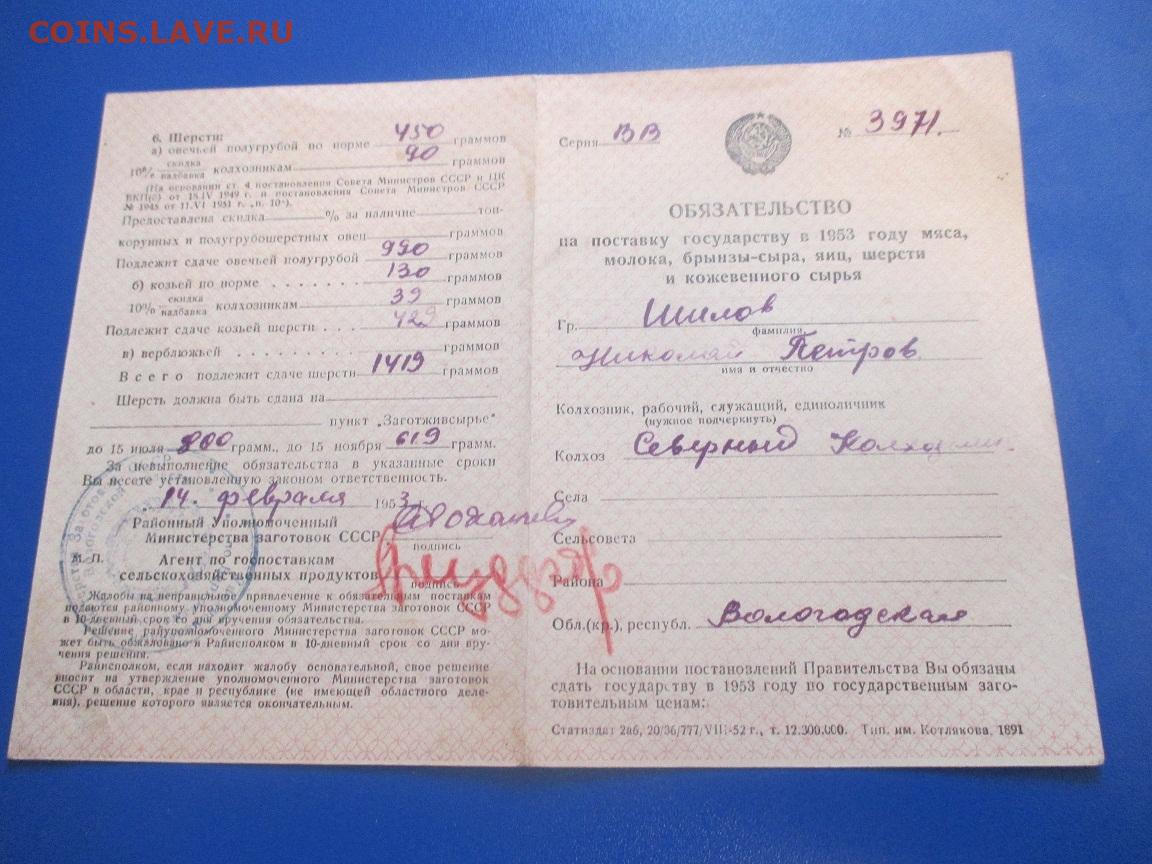 COINS.LAVE.RU
6. Шерсти:
а) овечьей полугрубой по норме 450 граммов
10% скидка надбавка колхозникам 90 граммов
(На основании ст. 4 постановления Совета Министров СССР и ЦК
ВКП(б) от 18.IV 1949 г. и постановления Совета Министров СССР
№ 1945 от 11.VI 1951 г.
Предоставлена скидка % за наличие тон-
корунных и полугрубошерстных овец граммов
Подлежит сдаче овечьей полугрубой 990 граммов
б) козьей по норме . . . . . . . 130 граммов
10% скидка надбавка колхозникам 39 граммов
Подлежит сдаче козьей шерсти . . . 429 граммов
в) верблюжьей . . . . . . . . . граммов
Всего подлежит сдаче шерсти 1419 граммов
Шерсть должна быть сдана на
пункт „Заготживсырье"
до 15 июля 800 грамм., до 15 ноября 619 грамм.
За невыполнение обязательства в указанные сроки
Вы несете установленную законом ответственность.
14. февраля 1953 г.
Районный Уполномоченный
Министерства заготовок СССР
подпись
М. П. Агент по госпоставкам
сельскохозяйственных продуктов
подпись
Жалобы на неправильное привлечение к обязательным поставкам
подаются районному уполномоченному Министерства заготовок СССР
в 10-дневный срок со дня вручения обязательства.
Решение райуполномоченного Министерства заготовок СССР мо-
жет быть обжаловано в Райисполком в 10-дневный срок со дня вру-
чения решения.
Райисполком, если находит жалобу основательной, свое решение
вносит на утверждение уполномоченного Министерства заготовок
СССР в области, крае и республике (не имеющей областного деле-
ния), решение которого является окончательным.
Серия ВВ № 3971.
ОБЯЗАТЕЛЬСТВО
на поставку государству в 1953 году мяса,
молока, брынзы-сыра, яиц, шерсти
и кожевенного сырья
Гр. Шилов
фамилия
Николай Петров
имя и отчество
Колхозник, рабочий, служащий, единоличник
(нужное подчеркнуть)
Колхоз Северный
Села
Сельсовета
Района
Обл.(кр.), республ. Вологодская
На основании постановлений Правительства Вы обязаны
сдать государству в 1953 году по государственным заго-
товительным ценам:
Статиздат 2аб, 20/36/777/VIII-52 г., т. 12.300.000. Тип. им. Котлякова. 1891